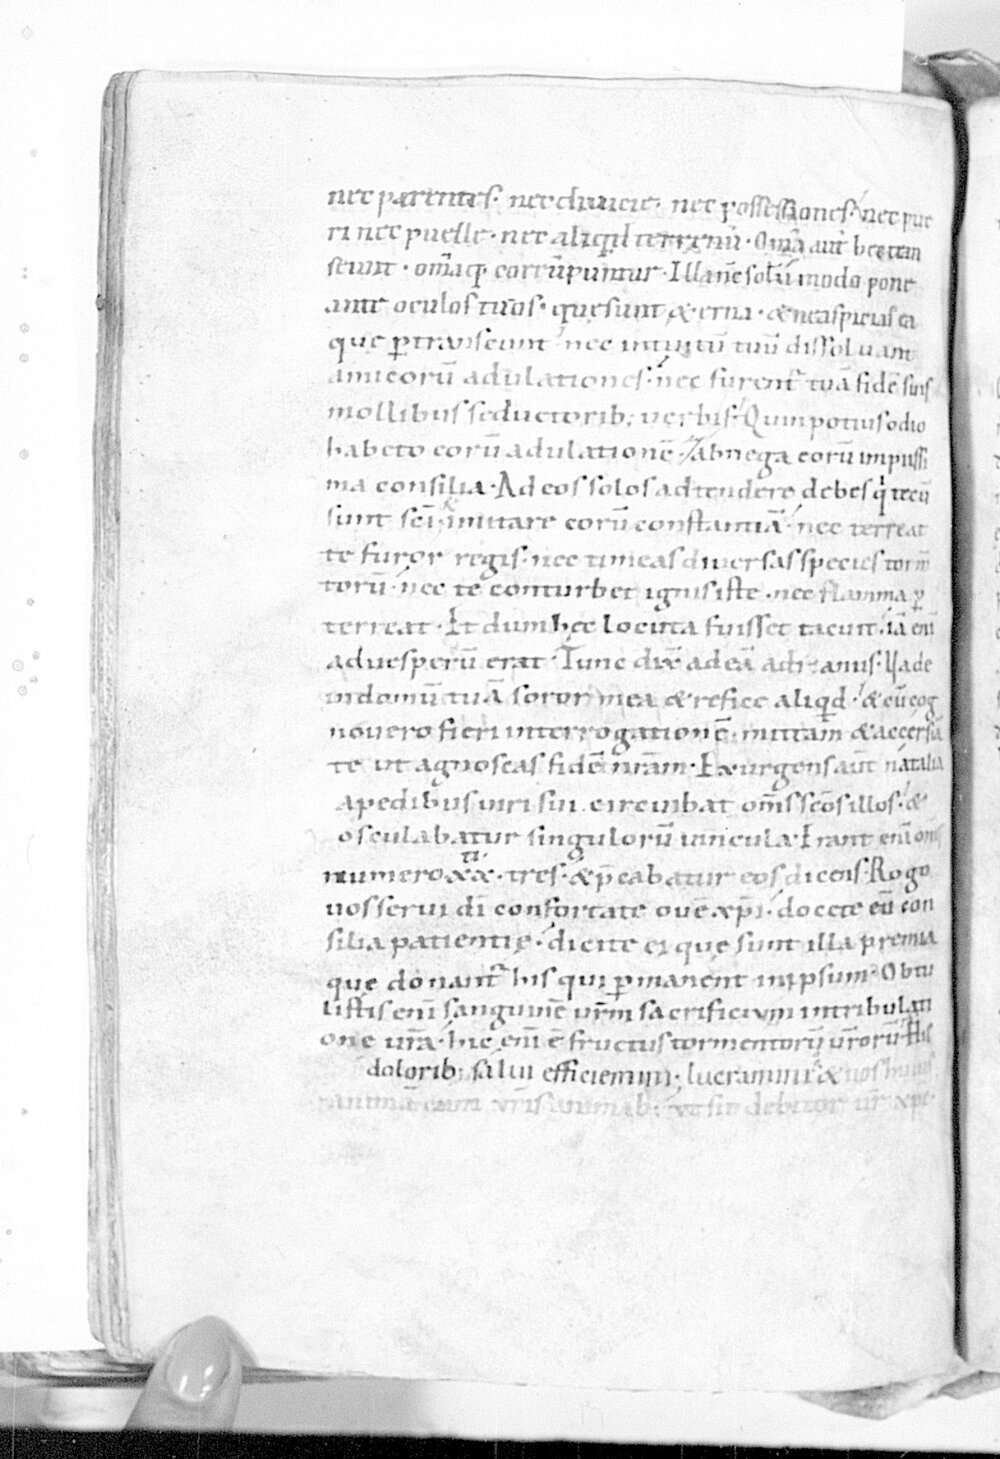 nec parentes · nec diuicie · nec possessiones · nec pue
ri nec puelle · nec aliqid terrenū · Om̄a aut̄ hec tran
seunt · om̄aq; corrūpuntur · Illa n̄c solū modo pone
ante oculos tuos · que sunt &erna · & ne aspicias ea
que ꝑtranseunt · nec intuitū tuū dissoluant
amicorū adulationes · nec furent̄ tuā fidē suis
mollibus seductorib; uerbis · Quin potius odio
habeto eorū adulationē · abnega eorū impiissi
ma consilia · Ad eos solos adtendere debes qi tecū
sunt sc̄i · & imitare eorū constantiā · nec terreat
te furor regis · nec timeas diuersas species torm̄
torū · nec te conturbet ignis iste · nec flamma ꝑ
terreat · Et dum hec locuta fuisset tacuit · iā eni
aduesperū erat · Tunc dix̄ ad eā adrianus · Vade
in domū tuā soror mea & refice aliqd · & cū cog
nouero fieri interrogationē · mittam & accersiā
te ut agnoscas fidē nr̄am · Exurgens aūt natalia
a pedibus uiri sui circuibat om̄s sc̄os illos · &
osculabatur singulorū uincula · Erant enī om̄s
numero xx ti · tres · & p̄cabatur eos dicens · Rogo
uos serui dī confortate ouē xp̄i · docete eū con
silia patientię · dicite ei que sunt illa premia
que donant̄ his qui ꝑmanent in ipsum · Obtu
listis enī sanguinē ur̄m sacrificium in tribulati
one ur̄a · hic enī ē fructus tormentorū ur̄orū · His
dolorib; salui efficiemini · lucramini & uos huius
animā cum ur̄is animab; ut sit debitor ur̄